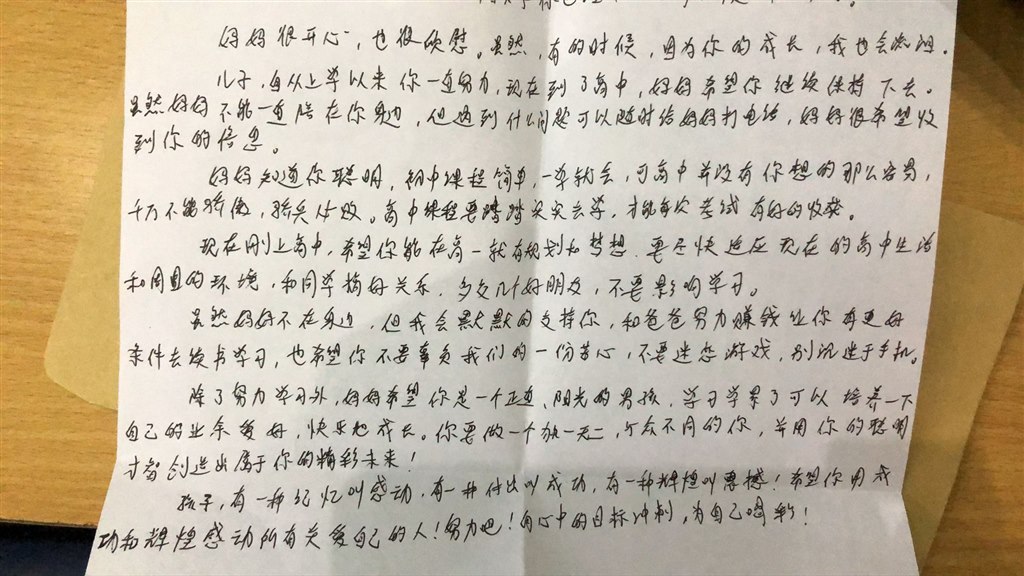 妈妈很开心，也很欣慰。虽然，有的时候，因为你的成长，我也会流泪。
儿子，自从上学以来你一直努力，现在到了高中，妈妈希望你继续保持下去。
虽然妈妈不能一直陪在你身边，但遇到什么问题可以随时给妈妈打电话，妈妈很希望收
到你的信息。
妈妈知道你聪明，初中课程简单，一学就会，可高中并没有你想的那么容易，
千万不能骄傲，骄兵必败。高中课程要踏踏实实去学，才能每次考试有好的收获。
现在刚上高中，希望你能在高一就有规划和梦想，要尽快适应现在的高中生活
和周围的环境，和同学搞好关系，多交几个好朋友，不要影响学习。
虽然妈妈不在身边，但我会默默的支持你，和爸爸努力赚钱让你有更好
条件去读书学习，也希望你不要辜负我们的一份苦心，不要迷恋游戏，别沉迷于手机。
除了努力学习外，妈妈希望你是一个正直、阳光的男孩，学习学累了可以培养一下
自己的业余爱好，快乐地成长。你要做一个独一无二，与众不同的你，并用你的聪明
才智创造出属于你的精彩未来！
孩子，有一种记忆叫感动，有一种付出叫成功，有一种辉煌叫震撼！希望你用成
功和辉煌感动所有关爱自己的人！努力吧！向心中的目标冲刺，为自己喝彩！